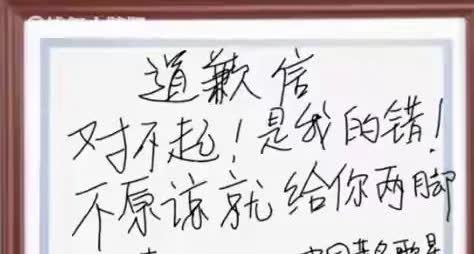 道歉信
对不起！是我的错！
不原谅就给你两脚